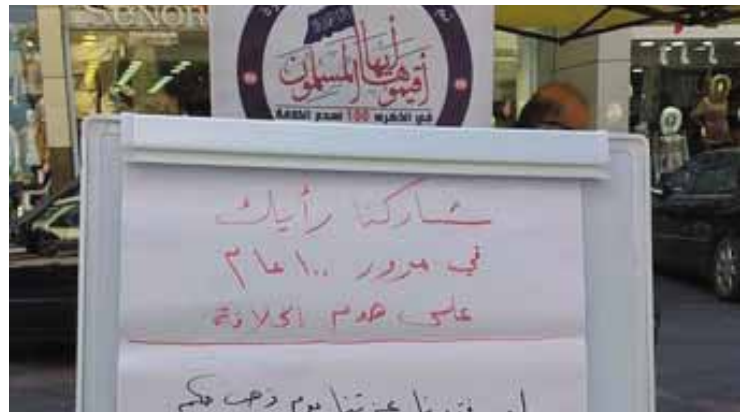 SENOR
أقيموها أيها المسلمون
في الذكرى 100 لهدم الخلافة
شاركنا رأيك
في مرور ١٠٠ عام
على هدم الخلافة
يوم ذهب حكم